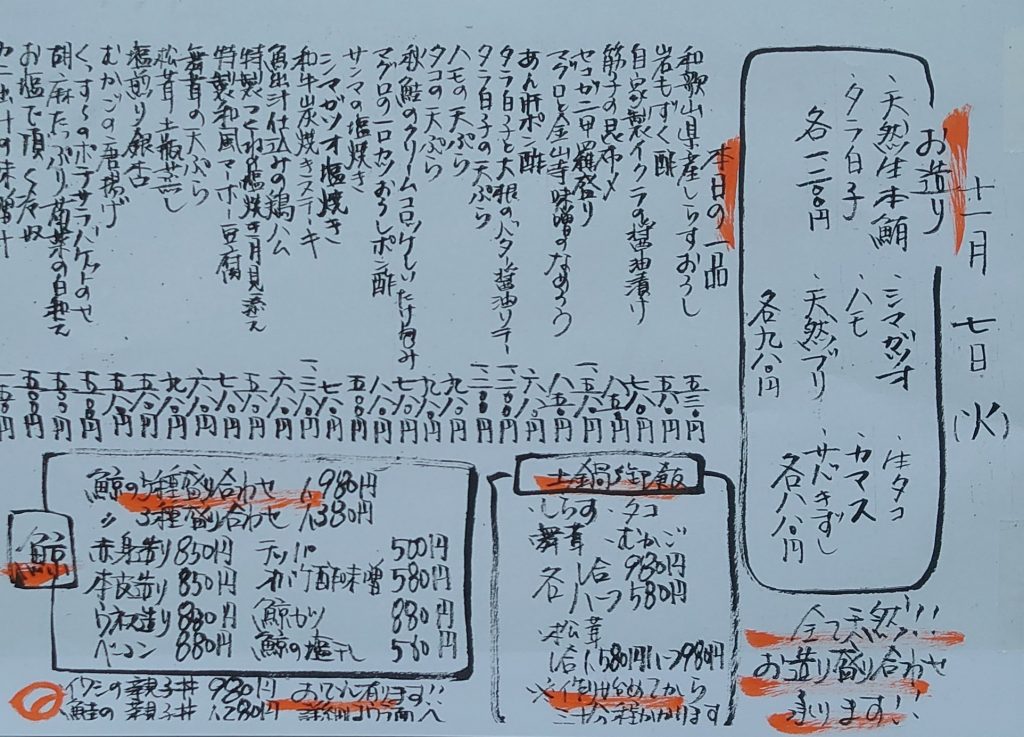 十一月 七日 (火)
お造り
・天然生本鮪
・タラ白子
各一二〇〇円
・シマガツオ
・ハモ
・天然ブリ
各九八〇円
・生タコ
・カマス
・サバきずし
各八八〇円
全て天然!!!
お造り盛り合わせ
承ります!!
本日の一品
和歌山県産しらすおろし 五三〇円
岩もずく酢 五八〇円
自家製イクラの醤油漬け 六八〇円
筋子の昆布〆 八五〇円
セコガニ甲羅盛り 一、五八〇円
マグロと金山寺味噌のなめろう 八五〇円
あん肝ポン酢 六八〇円
タラ白子と大根のバター醤油ソテー 一、二〇〇円
タラ白子の天ぷら 一、二〇〇円
ハモの天ぷら 九八〇円
タコの天ぷら 九八〇円
秋鮭のクリームコロッケしいたけ包み 七八〇円
マグロの一口カツおろしポン酢 八八〇円
サンマの塩焼き 八五〇円
シマガツオ塩焼き 七八〇円
和牛炭焼きステーキ 一、三八〇円
魚出汁仕込みの鶏ハム 六八〇円
特製つくね塩焼き月見添え 五八〇円
特製和風マーボー豆腐 七八〇円
舞茸の天ぷら 六八〇円
松茸土瓶蒸し 九八〇円
塩煎り銀杏 五八〇円
むかごの唐揚げ 五八〇円
のポテサラバゲットのせ 五五〇円
胡麻たっぷり菊菜の白和え 五五〇円
お塩で頂く冷奴 五五〇円
カニ出汁の味噌汁 一五〇円
土鍋御飯
・しらす ・タコ
・舞茸 ・むかご
各 1合 980円
ハーフ 580円
・松茸
1合 1,580円 ハーフ 980円
※作り始めてから
三十分程かかります
鯨
鯨の5種盛り合わせ 1,980円
〃 3種盛り合わせ 1,380円
赤身造り 850円
本皮造り 850円
ウネス造り 880円
ベーコン 880円
テッパ 500円
オバケ酢味噌 580円
鯨カツ 880円
鯨の塩干し 580円
イワシの親子丼 980円
鮭の親子丼 1,280円
おでん有ります!!
詳細はウラ面へ